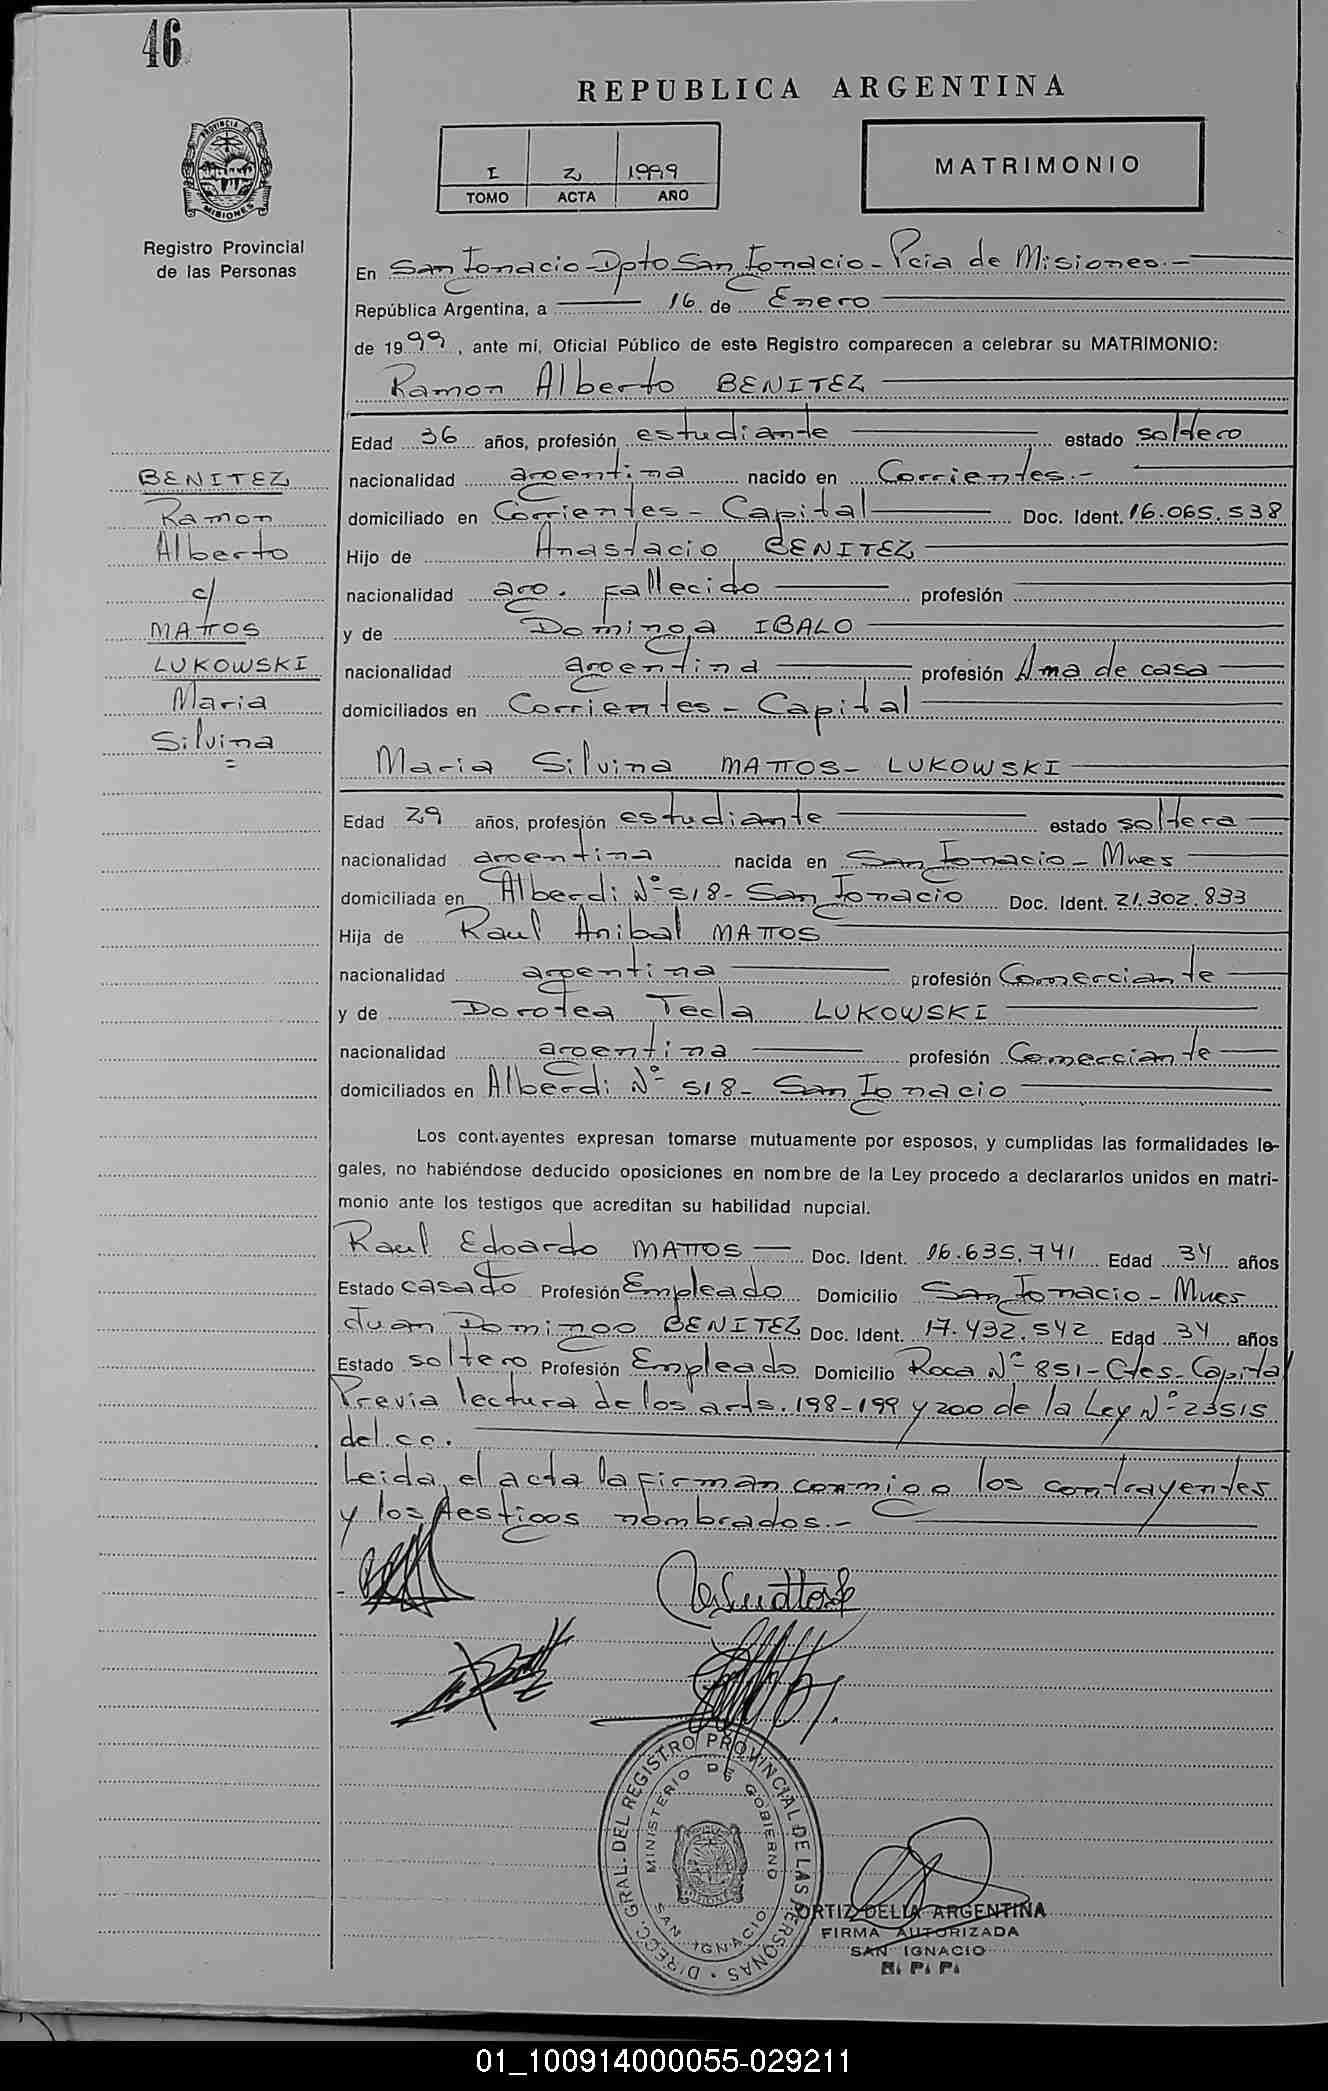 46
REPUBLICA ARGENTINA
I 2 1999
TOMO ACTA AÑO
MATRIMONIO
PROVINCIA DE
MISIONES
Registro Provincial
de las Personas
En San Ignacio - Dpto San Ignacio - Pcia de Misiones.-
República Argentina, a 16 de Enero
de 1999, ante mí, Oficial Público de este Registro comparecen a celebrar su MATRIMONIO:
Ramon Alberto BENITEZ
Edad 36 años, profesión estudiante estado soltero
nacionalidad argentina nacido en Corrientes.-
domiciliado en Corrientes - Capital Doc. Ident. 16.065.538
Hijo de Anastacio BENITEZ
nacionalidad arg. fallecido profesión
y de Dominga IBALO
nacionalidad argentina profesión Ama de casa
domiciliados en Corrientes - Capital
BENITEZ
Ramon
Alberto
c/
MATTOS
LUKOWSKI
Maria
Silvina
=
Maria Silvina MATTOS - LUKOWSKI
Edad 29 años, profesión estudiante estado soltera
nacionalidad argentina nacida en San Ignacio - Mnes
domiciliada en Alberdi Nº 518 - San Ignacio Doc. Ident. 21.302.833
Hija de Raul Anibal MATTOS
nacionalidad argentina profesión Comerciante
y de Dorotea Tecla LUKOWSKI
nacionalidad argentina profesión Comerciante
domiciliados en Alberdi Nº 518 - San Ignacio
Los cont.ayentes expresan tomarse mutuamente por esposos, y cumplidas las formalidades le-
gales, no habiéndose deducido oposiciones en nombre de la Ley procedo a declararlos unidos en matri-
monio ante los testigos que acreditan su habilidad nupcial.
Raul Edoardo MATTOS Doc. Ident. 16.635.741 Edad 34 años
Estado casado Profesión Empleado Domicilio San Ignacio - Mnes
Juan Domingo BENITEZ Doc. Ident. 17.432.542 Edad 34 años
Estado soltero Profesión Empleado Domicilio Roca Nº 851 - Ctes - Capital
Previa lectura de los arts. 198-199 y 200 de la Ley Nº 23515
del c.c.
Leida, el acta la firman conmigo los contrayentes
y los testigos nombrados.-
DIRECC. GRAL. DEL REGISTRO PROVINCIAL DE LAS PERSONAS
MINISTERIO DE GOBIERNO
SAN IGNACIO
ORTIZ DELIA ARGENTINA
FIRMA AUTORIZADA
SAN IGNACIO
R. P. P.
01_100914000055-029211